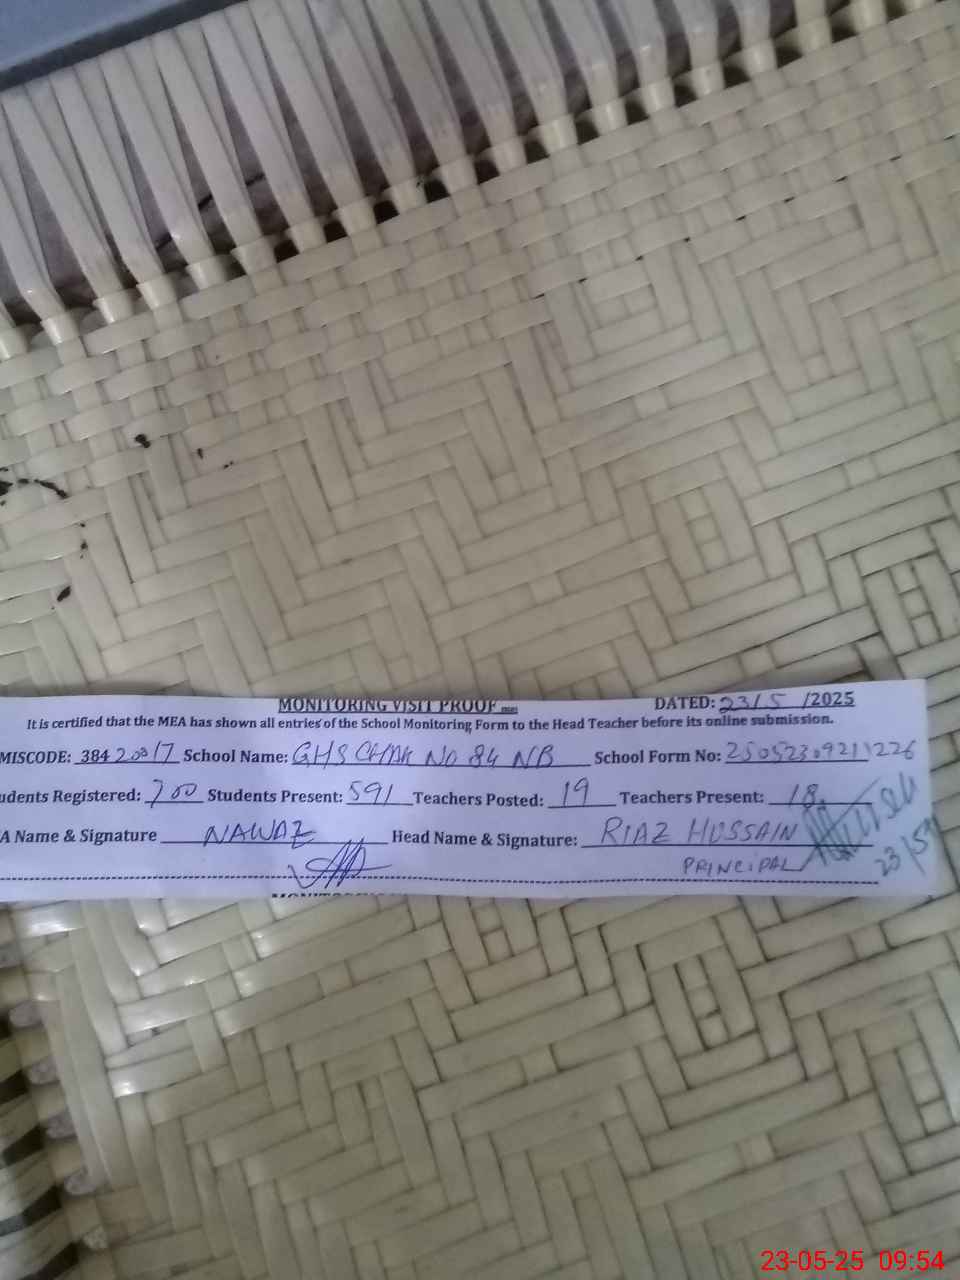 MONITORING VISIT PROOF DATED: 23/5/2025
It is certified that the MEA has shown all entries of the School Monitoring Form to the Head Teacher before its online submission.
MISCODE: 38420017 School Name: GHS CHAK NO 84 NB School Form No:
udents Registered: 700 Students Present: 591 Teachers Posted: 19 Teachers Present: 18
A Name & Signature NAWAZ Head Name & Signature: RIAZ HUSSAIN
PRINCIPAL 23/5
23-05-25 09:54